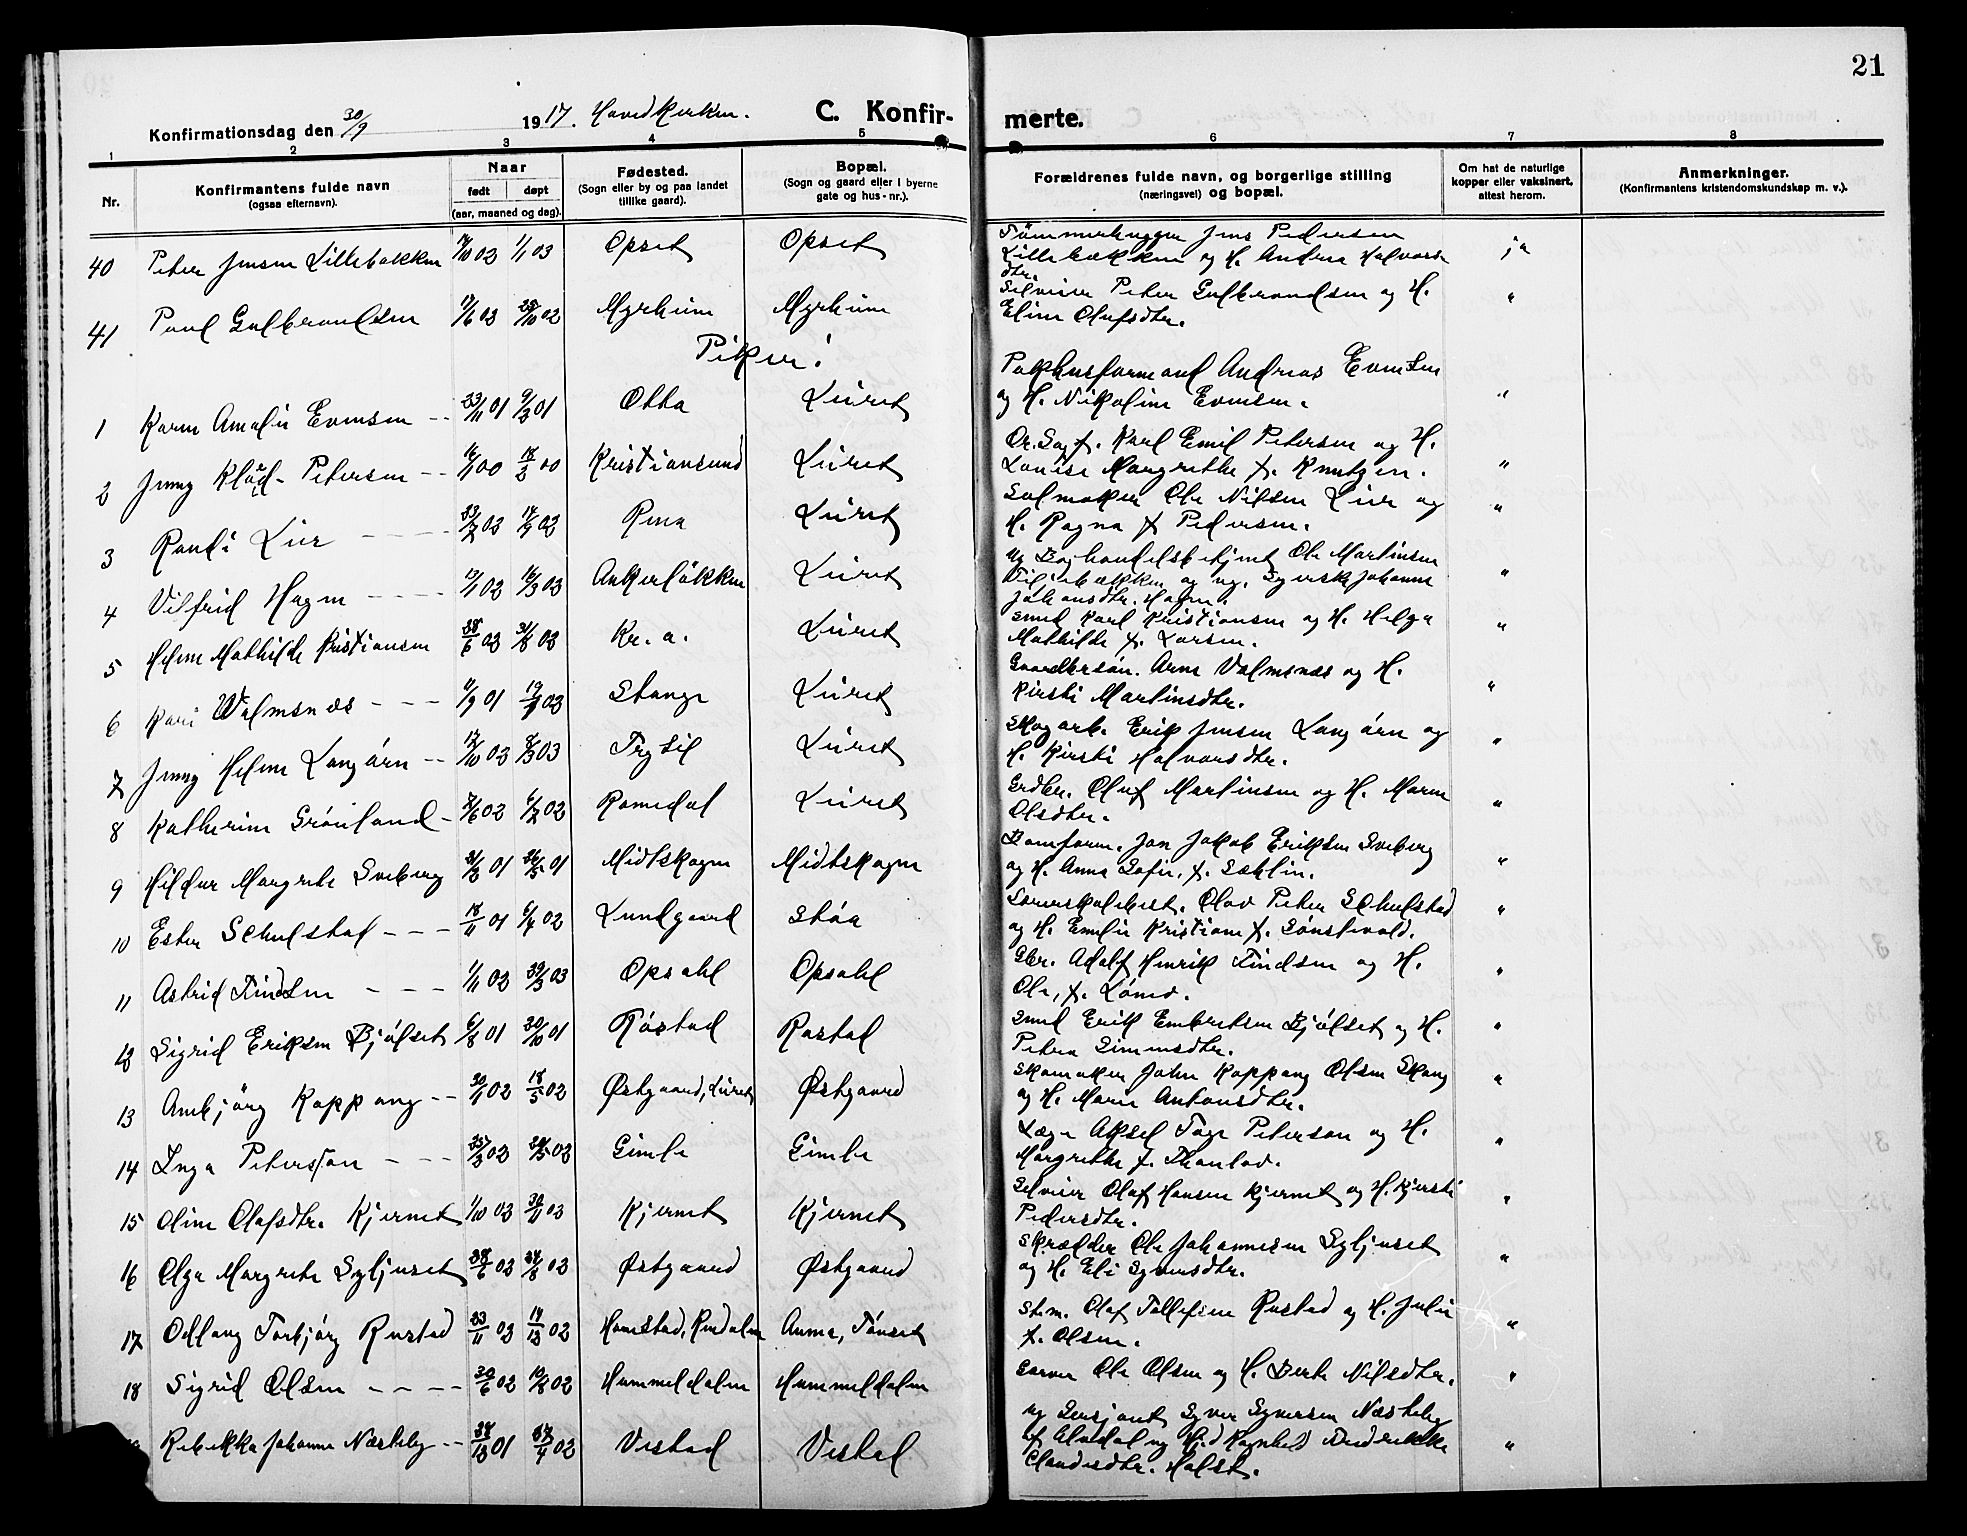 21
Konfirmationsdag den 30/9 1917. Hovedkirken. C. Konfir- merte.
1 2 3 4 5 6 7 8
Nr.
Konfirmantens fulde navn
(ogsaa efternavn).
Naar
født døpt
(aar, maaned og dag).
Fødested.
(Sogn eller by og paa landet
tillike gaard).
Bopæl.
(Sogn og gaard eller i byerne
gate og hus-nr.).
Forældrenes fulde navn, og borgerlige stilling
(næringsvei) og bopæl.
Om hat de naturlige
kopper eller vaksinert,
attest herom.
Anmerkninger.
(Konfirmantens kristendomskundskap m. v.).
40 Peter Jensen Lillebakken 03 1/1 03 Opset Opset Tømmerhugger Jens Pedersen ja
Lillebækken og H. Andrea Halvors
dtr.
41 Paul Gulbrandsen 03 02 Myrheim Myrheim Selveier Peter Gulbrandsen og H. "
Eline Olufsdtr.
Piker:
1 Karen Amalie Evensen 23/11 01 9/3 01 Otta Leiret Pakhusformand Andreas Evensen
og H. Nikoline Evensen. "
2 Jenny Petersen 00 18/2 00 Kristiansund Leiret Or.Sagf. Karl Emil Petersen og H.
Louise Margrethe f. Knutzen. "
3 Randi Lier 03 03 Rena Leiret Salmaker Ole Nilsen Lier og "
H. Ragna f. Pedersen.
4 Vilfrid Hagen 03 16/3 03 Ankerløkken Leiret Ug. Boghandelsbetjent Ole Martinsen
og ug. Syersk Johanne "
Johansdtr. Hagen.
5 Helene Mathilde Kristiansen 28/6 03 31/8 03 Kr.a. Leiret Smed Karl Kristiansen og H. Helga "
Mathilde f. Larsen.
6 Kari Valmsnæs 11/9 01 03 Stange Leiret Gaardbersøn. Arne Valmsnæs og H.
Kirsti Martinsdtr. "
7 Jenny Helene Langørn 03 03 Trysil Leiret Skogarb. Erik Jensen Langørn og "
H. Kirsti Halvorsdtr.
8 Katherine Grønland 02 02 Romedal Leiret Grdbr. Oluf Martinsen og H. Maren "
Olsdtr.
9 Hildur Margrete Sveberg 01 01 Midtskogen Midtskogen Bomform. Jon Jakob Eriksen Sveberg
og H. Anna Sofie, f. Sæhlin. "
10 Ester Schulstad 18/11 01 02 Lundgaard Støa Olav Peter Schulstad "
og H. Emilie Kristiane f. Sønstevold.
11 Astrid Findsen 1/11 02 03 Opsahl Opsahl Gbr. Adolf Henrik Findsen og H. "
12 Sigrid Eriksen Bjølset 6/8 01 20/10 01 Røstad Røstad Smed Erik Embretsen Bjølset og H. "
Petra Simensdtr.
13 Annbjørg Koppang 02 18/5 02 Østgaard, Leiret Østgaard Skomaker John Koppang Olsen Skang "
og H. Marie Antonsdtr.
14 Inga Petersson 03 03 Gimle Gimle Læge Aksel Tage Peterson og H. "
Margrethe f.
15 Oline Olafsdtr. Kjernet 1/10 03 03 Kjernet Kjernet Selveier Olaf Hansen Kjernet og H. Kjersti "
Pedersdtr.
16 Olga Margrete Syljuset 28/6 03 24/8 03 Østgaard Østgaard Skrædder Ole Johannesen Syljuset "
og H. Eli Syversdtr.
17 Odlaug Torbjørg Rustad 23/11 02 14/12 02 Homstad, Rendalen Auma, Tønset Stm. Olaf Tollefsen Rustad og H. Julie "
f. Olsen.
18 Sigrid Olsen 30/6 02 10/8 02 Hummeldalen Hummeldalen Garver Ole Olsen og H. Berte Nilsdtr. "
Rebekka Johanne Næsteby 28/12 01 27/4 02 Vestad Vestad Ug Sersjant Syver Syversen Næsteby
af Alvdal og Ragnhild Fredrikke "
Claudisdtr. Holst.